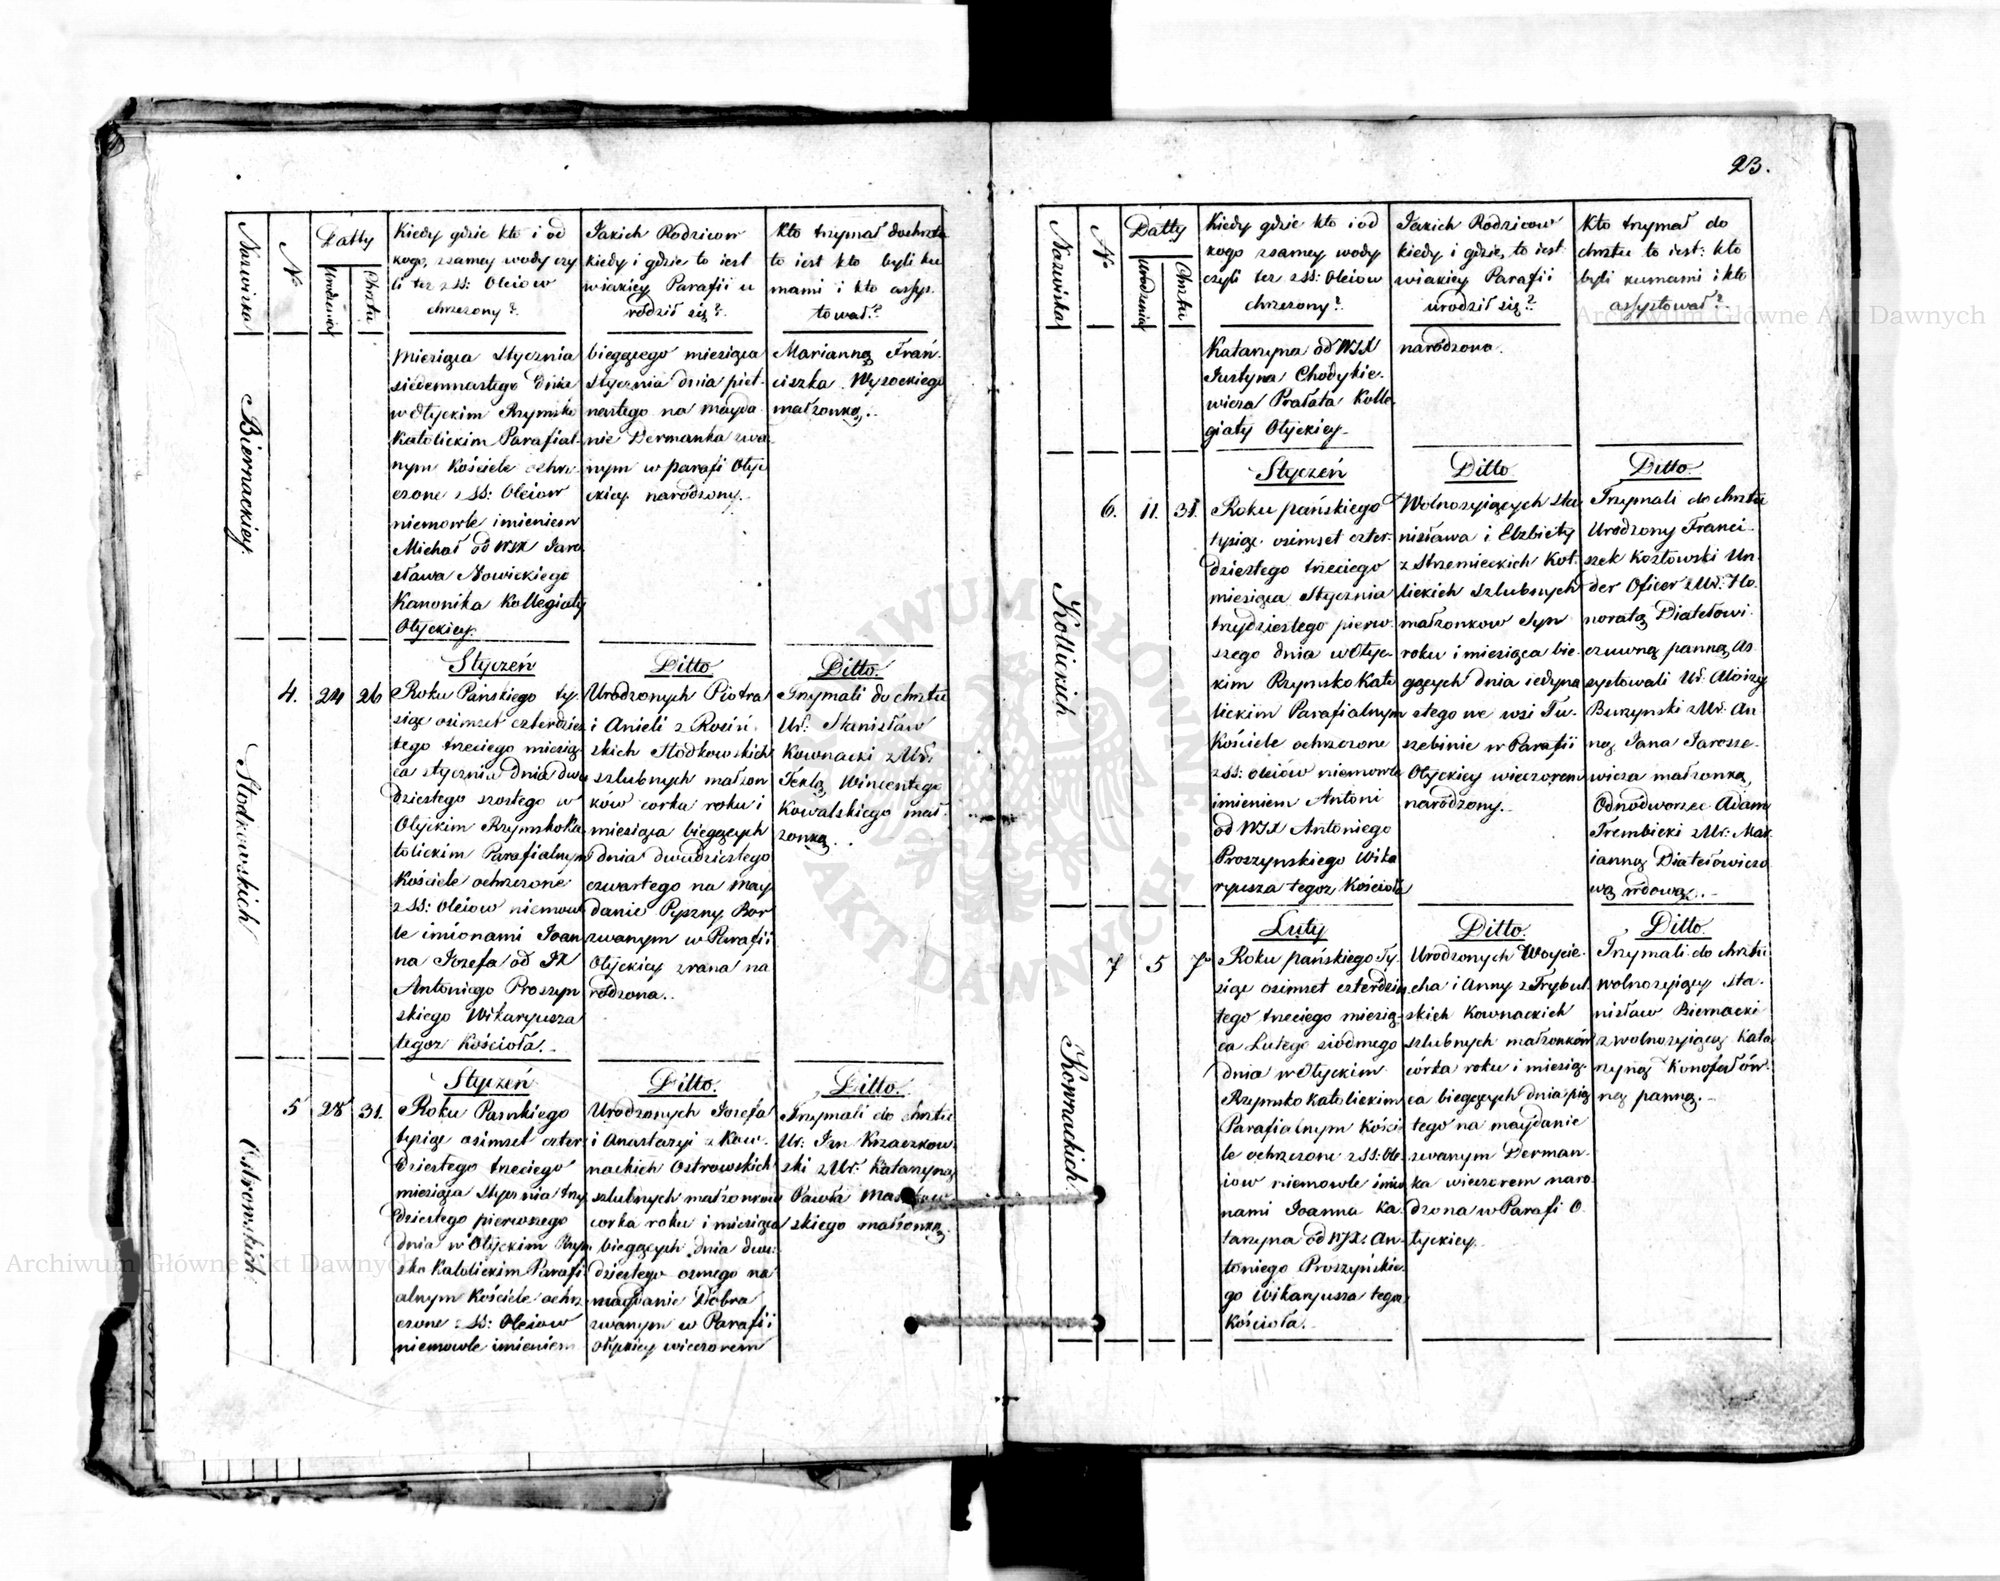 23.
Nazwiska
№
Datty
urodzenia
Chrztu
Kiedy gdzie kto i od
kogo, z samey wody czy
li też z SS: Oleiow
chrzczony?
Jakich Rodzicow
kiedy i gdzie to iest
w iakiey Parafii u
rodził się?
Kto trzymał do chrztu
to iest kto byli ku
mami i kto assys
tował?
Biernackiey
Miesiąca Stycznia
siedemnastego dnia
w Ołyckim Rzymsko
Katolickim Parafial-
nym Kościele ochrz
czone z SS: Oleiow
niemowle imieniem
Michał od WJX Jaro
sława Nowickiego
Kanonika Kollegiaty
Ołyckiey.
biegącego miesiąca
Stycznia dnia pięt-
nastego na mayda
nie Dermanka zwa
nym w parafi Ołyc
ckiey narodzony.
Marianną Fran-
ciszka Wysockiego
małżonką.
Słodkowskich
4. 24 26
Styczeń
Roku Pańskiego ty-
siąc osimset czterdzies
tego trzeciego miesią
ca stycznia dnia dwu
dziestego szostego w
Ołyckim Rzymsko Ka
tolickim Parafialnym
Kościele ochrzczone
z SS: Oleiow niemow
le imionami Joan
na Jozefa od JX
Antoniego Proszyn
skiego Wikaryusza
tegoż Kościoła.
Ditto
Urodzonych Piotra
i Anieli z Rociń
skich Słodkowskich
szlubnych małżon
ków corka roku i
miesiąca biegących
dnia dwudziestego
czwartego na may
danie Pyszny Bor
zwanym w Parafii
Ołyckiey zrana na
rodzona.
Ditto.
Trzymali do chrztu
Ur: Stanisław
Kownacki z Ur:
Teklą Wincentego
Kowalskiego mał-
żonką.
Ostrowskich
5 28 31.
Styczeń
Roku Pańskiego
tysiąc osimset czter
dziestego trzeciego
miesiąca Stycznia trzy
dziestego pierwszego
dnia w Ołyckim Rzym
sko Katolickim Parafi
alnym Kościele ochrz
czone z SS: Oleiow
niemowle imieniem
Ditto.
Urodzonych Jozefa
i Anastazyi z Kow-
nackich Ostrowskich
szlubnych małżonkow
corka roku i miesiąca
biegących dnia dwu
dziestego osmego na
maydanie Dobra
zwanym w Parafii
Ołyckiey wieczorem
Ditto.
Trzymali do chrztu
Ur: Jan Krzaczkow-
ski z Ur: Katarzyną
Pawła
skiego małżonką.
Nazwiska
№
Datty
urodzenia
Chrztu
Kiedy gdzie kto i od
kogo z samey wody
czyli też z SS: Oleiow
chrzczony?
Jakich Rodzicow
kiedy i gdzie, to iest
w iakiey Parafii
urodził się?
Kto trzymał do
chrztu to iest: kto
byli kumami i kto
assystował?
Katarzyna od WJX
Justyna Chodykie-
wicza Prałata Kolle-
giaty Ołyckiey.
narodzona.
Kotlickich
6. 11. 31.
Styczeń
Roku pańskiego
tysiąc osimset czter-
dziestego trzeciego
miesiąca Stycznia
trzydziestego pierw-
szego dnia w Ołyc-
kim Rzymsko Kato
lickim Parafialnym
Kościele ochrzczone
z SS: oleiów niemowle
imieniem Antoni
od WJX Antoniego
Proszynskiego Wika
ryusza tegoż Kościoła
Ditto.
Wolnozyiących Sta
nisława i Elżbiety
z Strzemieckich Kot-
lickich szlubnych
małżonkow syn
roku i miesiąca bie-
gących dnia iedyna
stego we wsi Tu-
szebinie w Parafii
Ołyckiey wieczorem
narodzony.
Ditto.
Trzymali do chrztu
Urodzony Franci-
szek Kozłowski Un-
der Oficer z Ur. Ho-
noratą Diatełowi-
czuwną panną as
systowali Ur. Aloizy
Burzynski z Ur: An-
ną Jana Jarosze-
wicza małżonką,
Odnodworzec Adam
Trembicki z Ur: Mar
ianną Diatełowiczo
wą wdową.
Kownackich
7 5 7
Luty
Roku pańskiego Ty-
siąc osimset czterdzies
tego trzeciego miesią-
ca Lutego siódmego
dnia w Ołyckim
Rzymsko katolickim
Parafialnym Kości-
le ochrzczone z SS: Ole
iow niemowle imio
nami Joanna Ka-
tarzyna od WJX An-
toniego Proszyńskie-
go Wikaryusza tegoż
Kościoła.
Ditto.
Urodzonych Woycie-
cha i Anny z Trybul-
skich Kownackich
szlubnych małżonków
córka roku i miesią-
ca biegących dnia pią
tego na maydanie
zwanym Derman-
ka wieczorem naro
dzona w Parafi O-
łyckiey.
Ditto.
Trzymali do chrztu
wolnozyiący Sta-
nisław Biernacki
z wolnozyiącą Kata
rzyną Konofałów-
ną panną.
Archiwum Główne Akt Dawnych
Archiwum Główne Akt Dawnych
ARCHIWUM GŁÓWNE AKT DAWNYCH